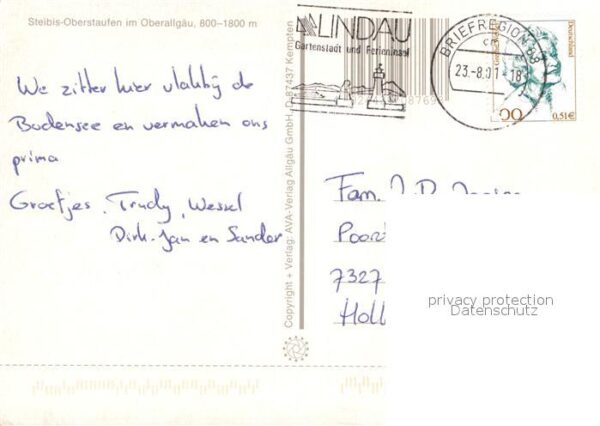 Steibis-Oberstaufen im Oberallgäu, 800–1800 m
LINDAU
Gartenstadt und Ferieninsel
BRIEFREGION 88
23.-8.01-18
Deutschland
0,51€
We zitten hier vlakbij de
Bodensee en vermaken ons
prima
Groetjes, Trudy, Wessel
Dirk-Jan en Sander
Copyright + Verlag: AVA-Verlag Allgäu GmbH, D-87437 Kempten
Fam. J.D.
Poor
7327
Holl
privacy protection
Datenschutz